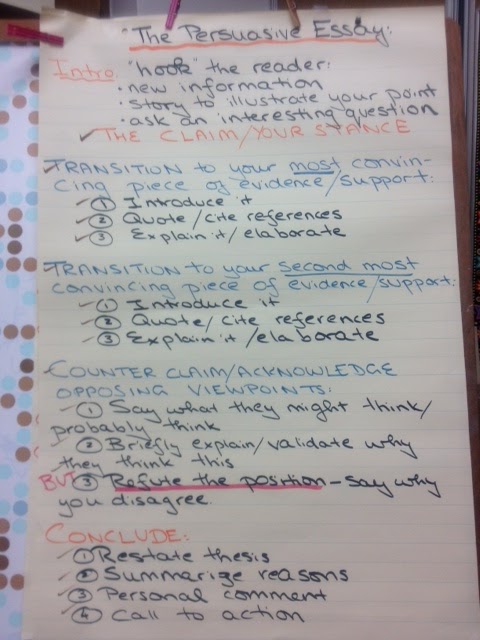 "The Persuasive Essay:
Intro: "hook" the reader:
• new information
• story to illustrate your point
• ask an interesting question
✓ THE CLAIM/YOUR STANCE
✓TRANSITION to your most convin-
cing piece of evidence/support:
✓① Introduce it
✓② Quote/cite references
✓③ Explain it/elaborate
✓TRANSITION to your second most
convincing piece of evidence/support:
✓① Introduce it
✓② Quote/cite references
✓③ Explain it/elaborate
COUNTER CLAIM/ACKNOWLEDGE
OPPOSING VIEWPOINTS:
✓① Say what they might think/
probably think
✓② Briefly explain/validate why
they think this
BUT ③ Refute the position - say why
you disagree.
CONCLUDE:
✓① Restate thesis
✓② Summarize reasons
✓③ Personal comment
✓④ Call to action